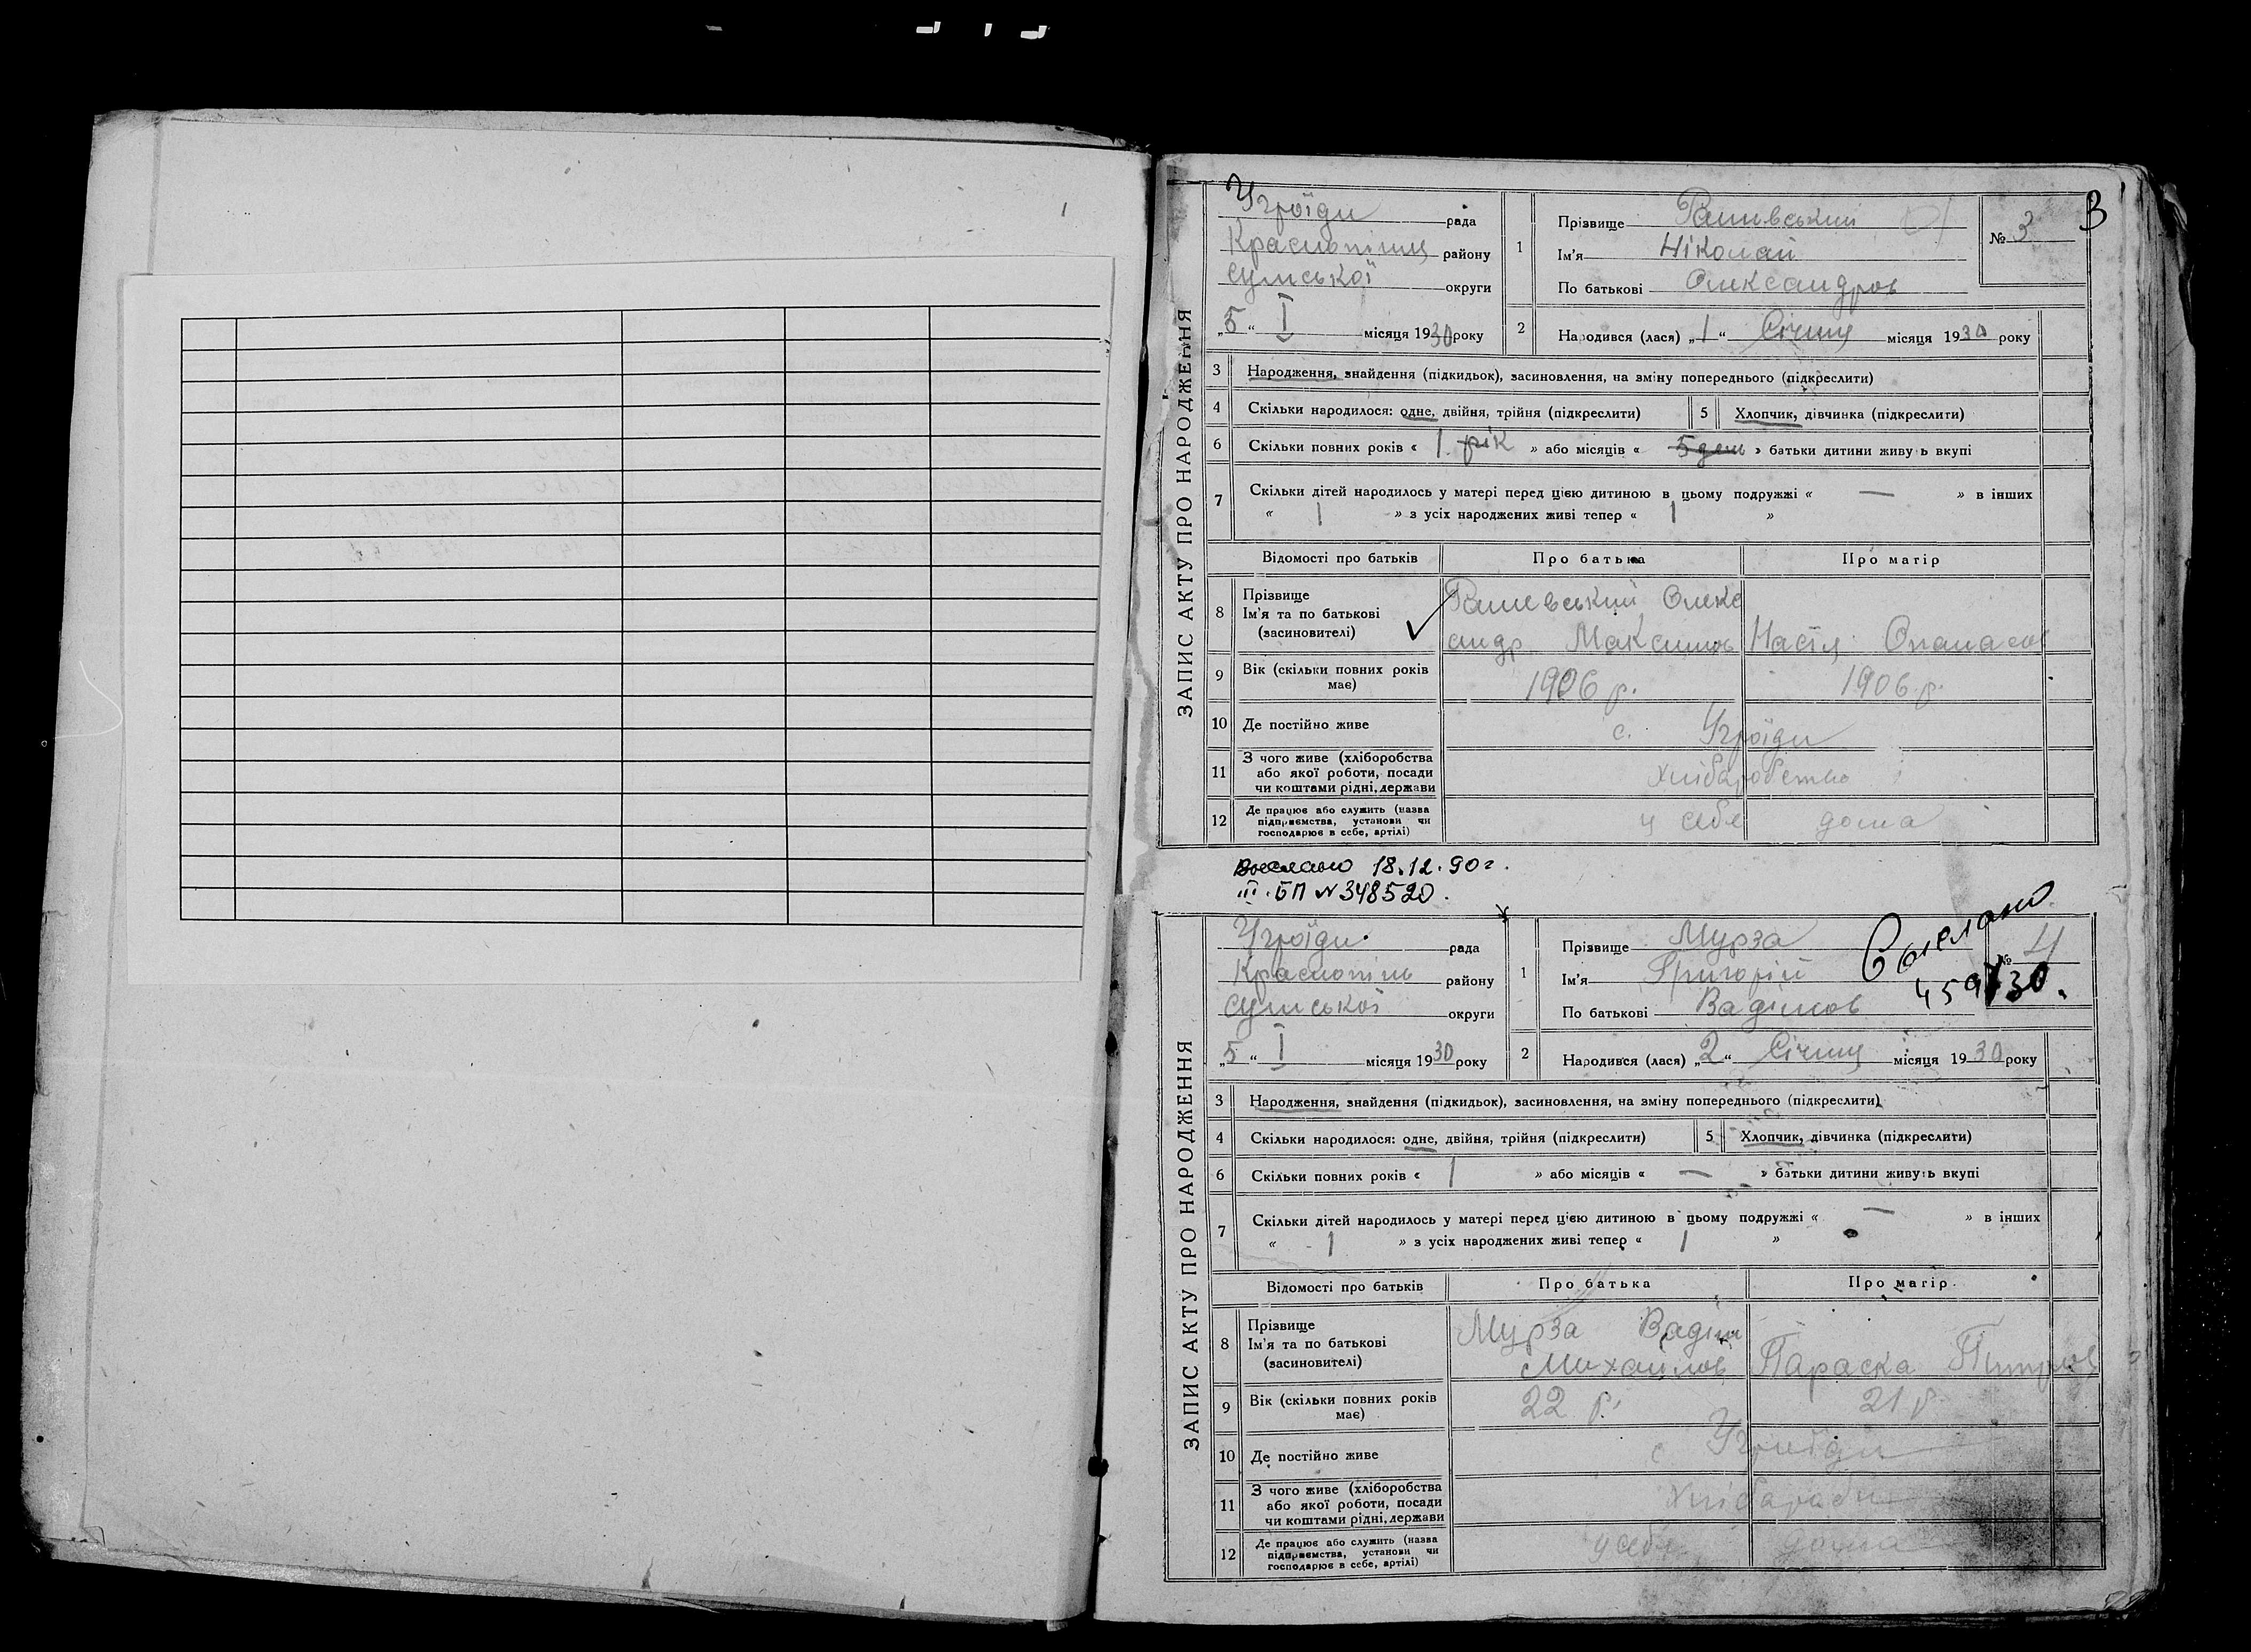 1
3
ЗАПИС АКТУ ПРО НАРОДЖЕННЯ
Угроїди рада
Краснопілля району
Сумської округи
„5“ I місяця 1930 року
1 Прізвище Рашевський
Ім'я Ніколай
По батькові Олександров
№ 3
2 Народився (лася) „1“ Січня місяця 1930 року
3 Народження, знайдення (підкидьок), засиновлення, на зміну попереднього (підкреслити)
4 Скільки народилося: одне, двійня, трійня (підкреслити) 5 Хлопчик, дівчинка (підкреслити)
6 Скільки повних років « 1 рік » або місяців « 5 день » батьки дитини живуть вкупі
7 Скільки дітей народилось у матері перед цією дитиною в цьому подружжі « — » в інших
« 1 » з усіх народжених живі тепер « 1 »
Відомості про батьків Про батька Про матір
8 Прізвище
Ім'я та по батькові
(засновителі)
Рашевський Олекс
андр Максимов Настя Опанасов
9 Вік (скільки повних років має) 1906 р. 1906 р.
10 Де постійно живе с. Угроїди
11 З чого живе (хліборобства
або якої роботи, посади
чи коштами рідні, держави
хліборобство
12 Де працює або служить (назва
підприємства, установи чи
господарює в себе, артілі)
у себе дома
Выслано 18.12.90 г.
III-БП N 348520.
ЗАПИС АКТУ ПРО НАРОДЖЕННЯ
Угроїди рада
Краснопіль району
Сумської округи
„5“ I місяця 1930 року
1 Прізвище Мурза
Ім'я Григорій
По батькові Вадімов
№ 4
Выслано
2 Народився (лася) „2“ Січня місяця 1930 року
3 Народження, знайдення (підкидьок), засиновлення, на зміну попереднього (підкреслити)
4 Скільки народилося: одне, двійня, трійня (підкреслити) 5 Хлопчик, дівчинка (підкреслити)
6 Скільки повних років « 1 » або місяців « — » батьки дитини живуть вкупі
7 Скільки дітей народилось у матері перед цією дитиною в цьому подружжі « — » в інших
« 1 » з усіх народжених живі тепер « 1 »
Відомості про батьків Про батька Про матір
8 Прізвище
Ім'я та по батькові
(засиновителі)
Мурза Вадім
Михайлов Параска
9 Вік (скільки повних років має) 22 р. 21 р.
10 Де постійно живе с Угроїди
11 З чого живе (хліборобства
або якої роботи, посади
чи коштами рідні, держави
12 Де працює або служить (назва
підприємства, установи чи
господарює в себе, артілі)
у себе дома